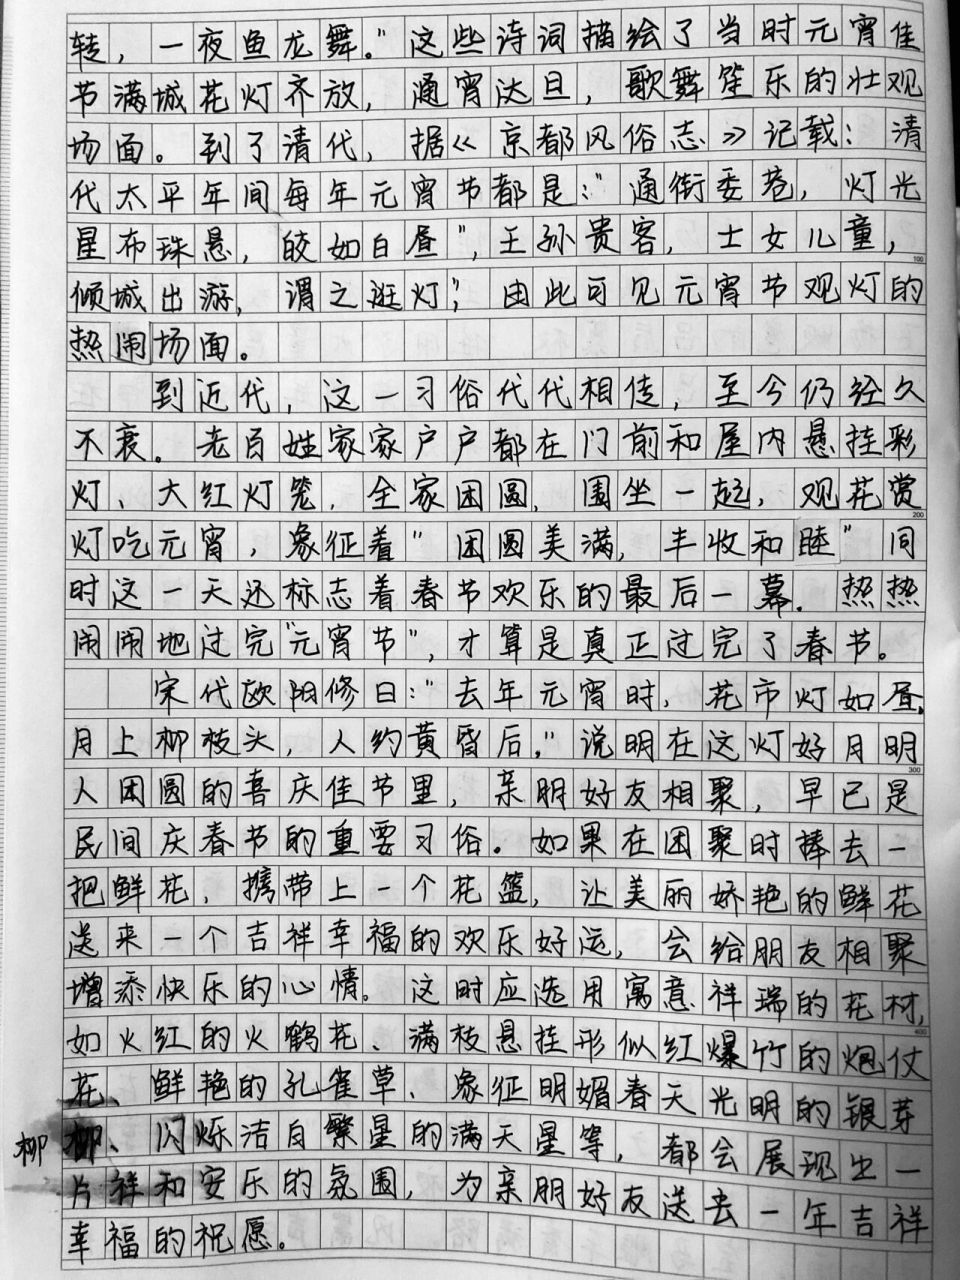 转，一夜鱼龙舞。"这些诗词描绘了当时元宵佳
节满城花灯齐放，通宵达旦，歌舞笙乐的壮观
场面。到了清代，据《京都风俗志》记载：清
代太平年间每年元宵节都是："通街委巷，灯光
星布珠悬，皎如白昼"，王孙贵客，士女儿童，
倾城出游，谓之逛灯"，由此可见元宵节观灯的
热闹场面。
到近代，这一习俗代代相传，至今仍经久
不衰。老百姓家家户户都在门前和屋内悬挂彩
灯、大红灯笼，全家团圆，围坐一起，观花赏
灯吃元宵，象征着"团圆美满，丰收和睦"同
时这一天还标志着春节欢乐的最后一幕。热热
闹闹地过完"元宵节"，才算是真正过完了春节。
宋代欧阳修曰："去年元宵时，花市灯如昼，
月上柳枝头，人约黄昏后。"说明在这灯好月明
人团圆的喜庆佳节里，亲朋好友相聚，早已是
民间庆春节的重要习俗。如果在团聚时捧去一
把鲜花，携带上一个花篮，让美丽娇艳的鲜花
送来一个吉祥幸福的欢乐好运，会给朋友相聚
增添快乐的心情。这时应选用寓意祥瑞的花材，
如火红的火鹤花、满枝悬挂形似红爆竹的炮仗
花、鲜艳的孔雀草、象征明媚春天光明的银芽
柳 柳、闪烁洁白繁星的满天星等，都会展现出一
片祥和安乐的氛围，为亲朋好友送去一年吉祥
幸福的祝愿。
100
200
300
400